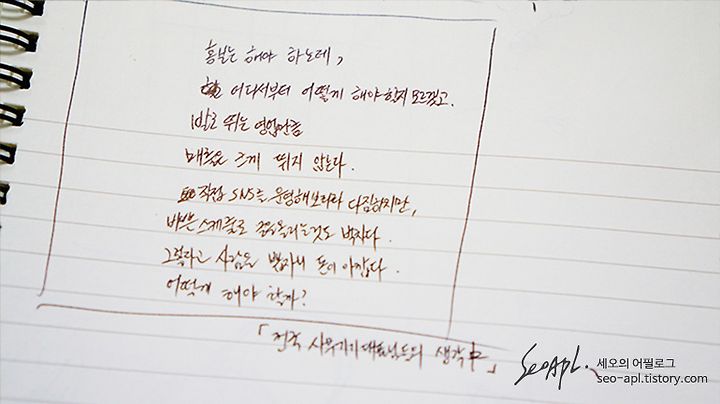 홍보는 해야 하는데,
어디서부터 어떻게 해야할지 모르겠고.
발로 뛰는 영업만큼
매출은 크게 뛰지 않는다.
직접 SNS를 운영해보리라 다짐하지만,
바쁜 스케줄로 글올리는것도 벅차다.
그렇다고 사람을 뽑자니 돈이 아깝다.
어떻게 해야 할까?
「전국 사무기기대표님들의 생각中」
SeoApl.
세오의 어필로그
seo-apl.tistory.com